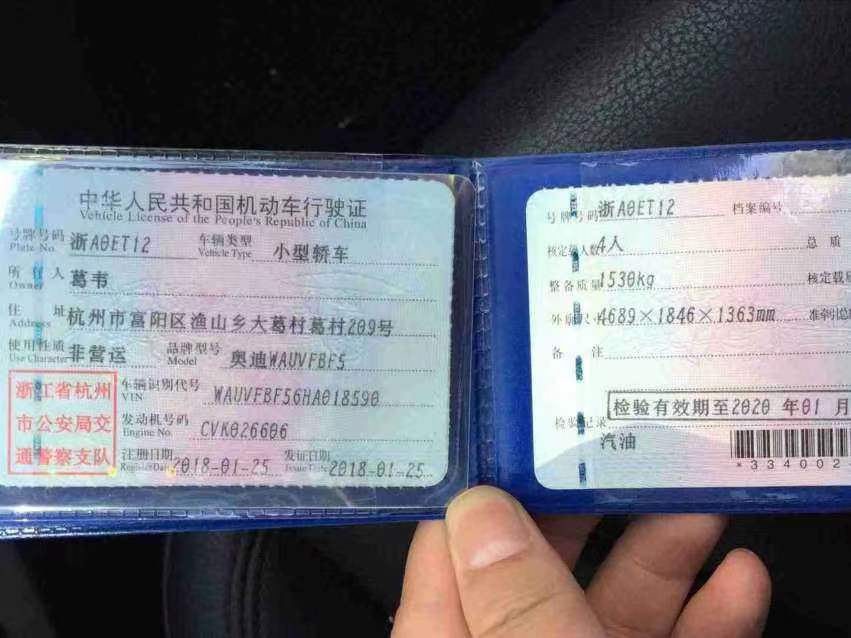 中华人民共和国机动车行驶证
Vehicle License of the People's Republic of China
号牌号码 浙A0ET12 车辆类型 小型轿车
Plate No. Vehicle Type
所有人 葛韦
Owner
住址 杭州市富阳区渔山乡大葛村葛村209号
Address
使用性质 非营运 品牌型号 奥迪WAUVFBF5
Use Character Model
浙江省杭州
市公安局交
通警察支队
车辆识别代号 WAUVFBF56HA018590
VIN
发动机号码 CVK026606
Engine No.
注册日期 2018-01-25 发证日期 2018-01-25
Register Date Issue Date
号牌号码 浙A0ET12 档案编号
核定载人数 4人 总质
整备质量 1530kg 核定载质
外廓尺寸 4689×1846×1363mm 准牵引总
备注
检验有效期至2020年01月
检验记录
汽油
*334002